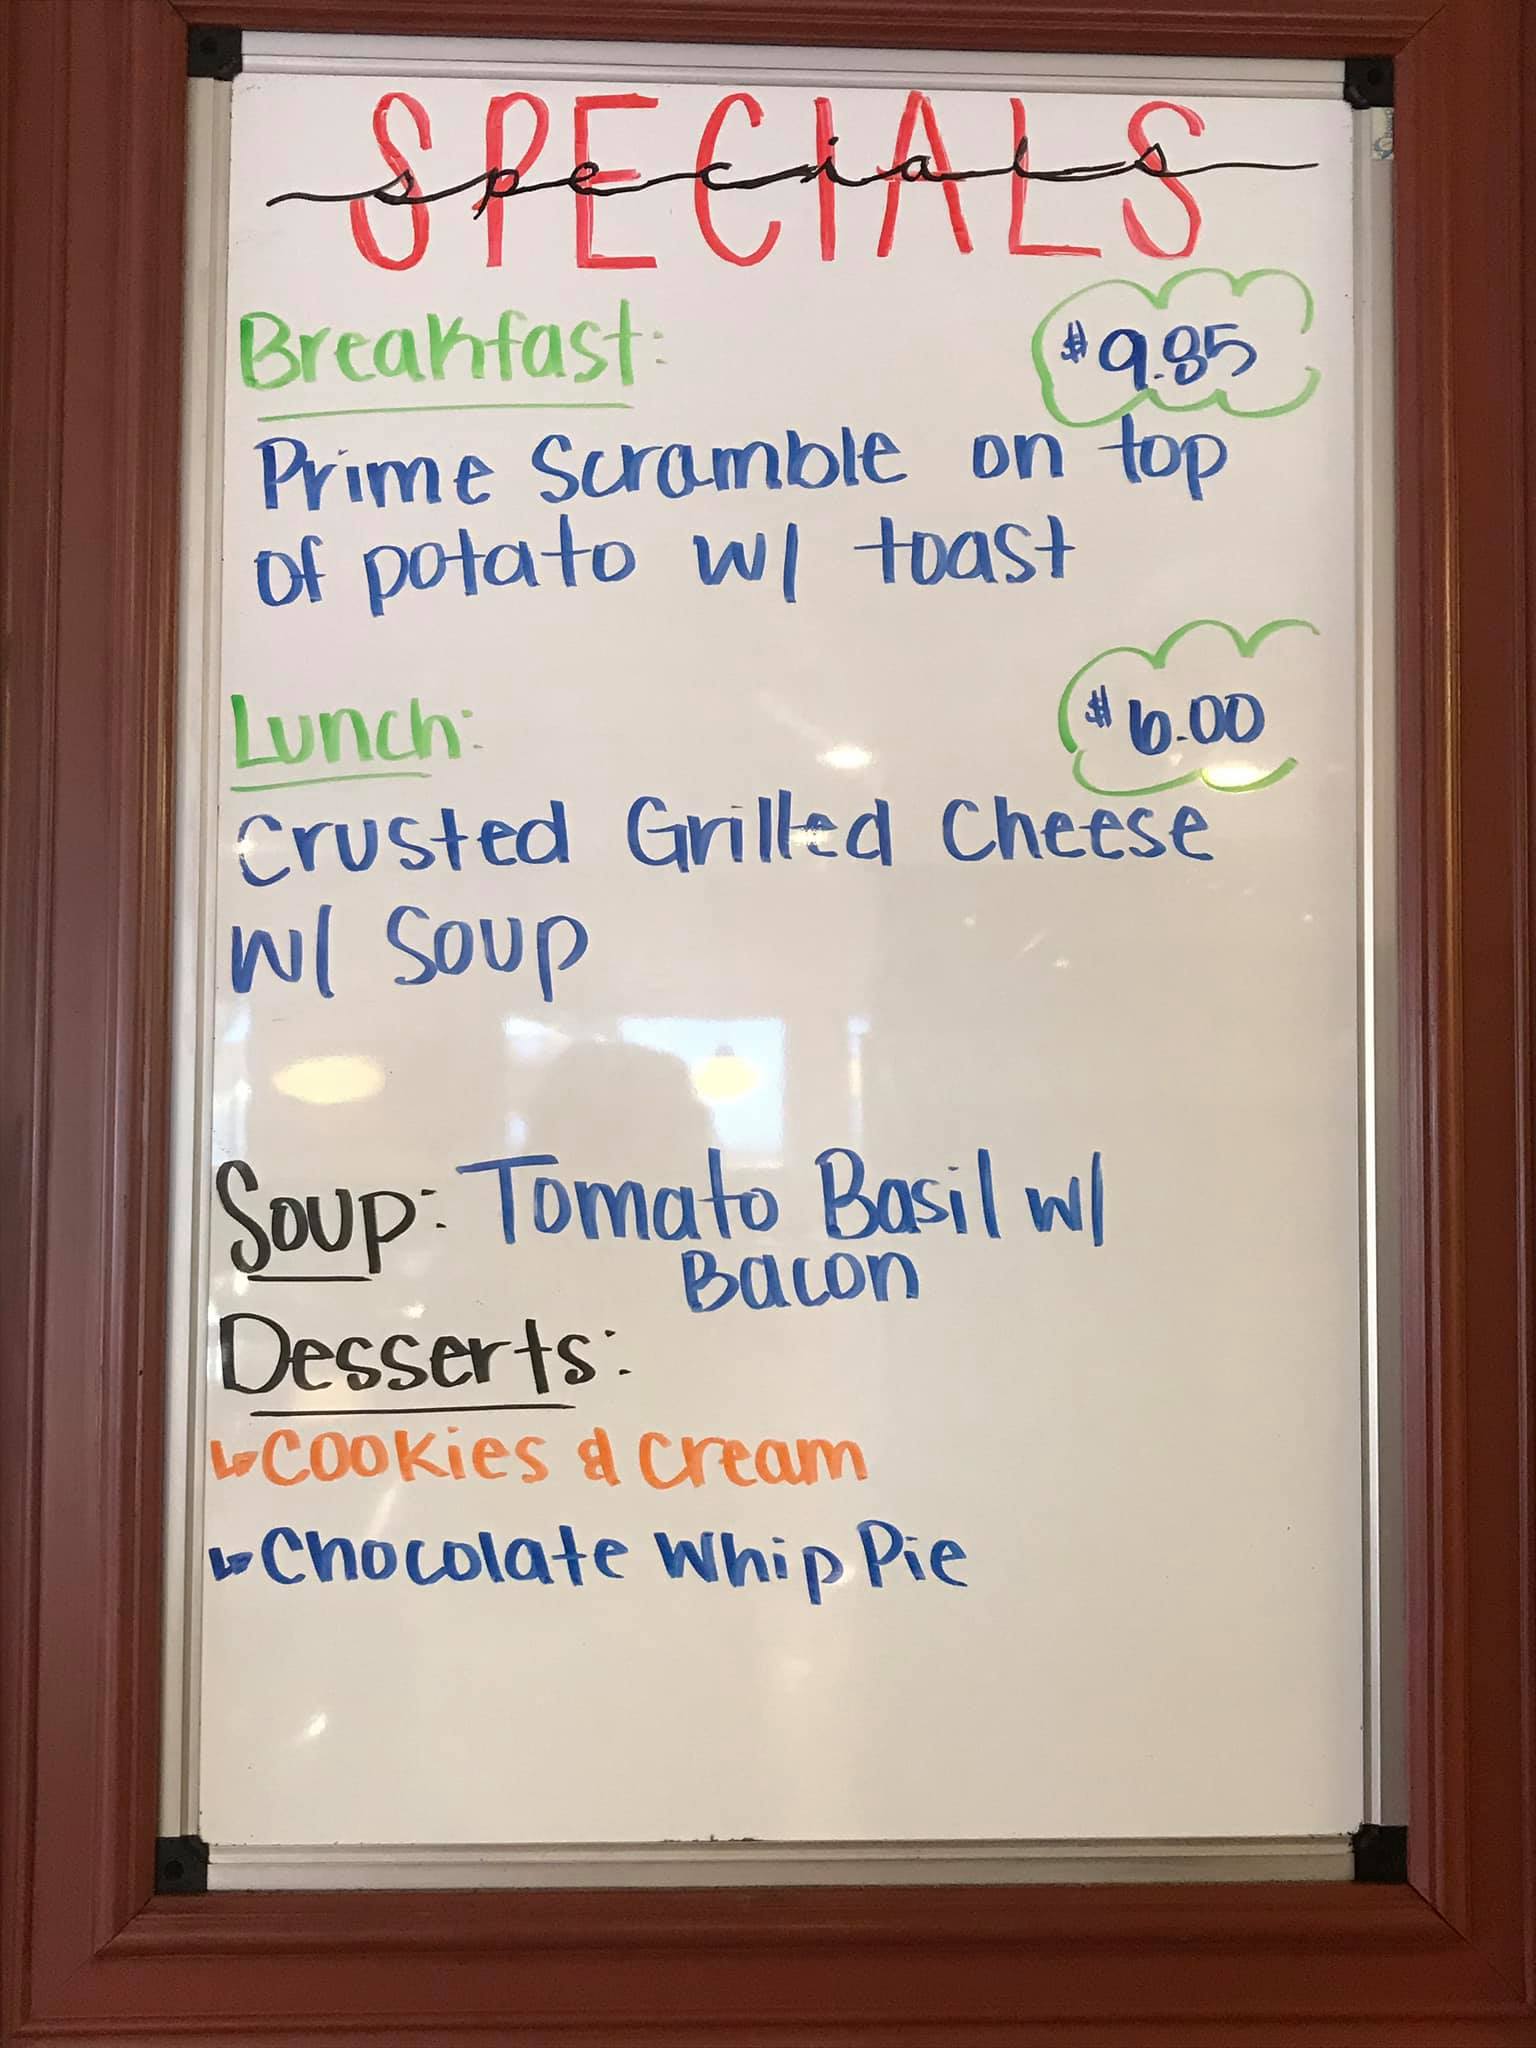 SPECIALS
specials
Breakfast: $9.85
Prime Scramble on top
of potato w/ toast
Lunch: $6.00
Crusted Grilled Cheese
w/ Soup
Soup: Tomato Basil w/
Bacon
Desserts:
↳Cookies & Cream
↳Chocolate Whip Pie